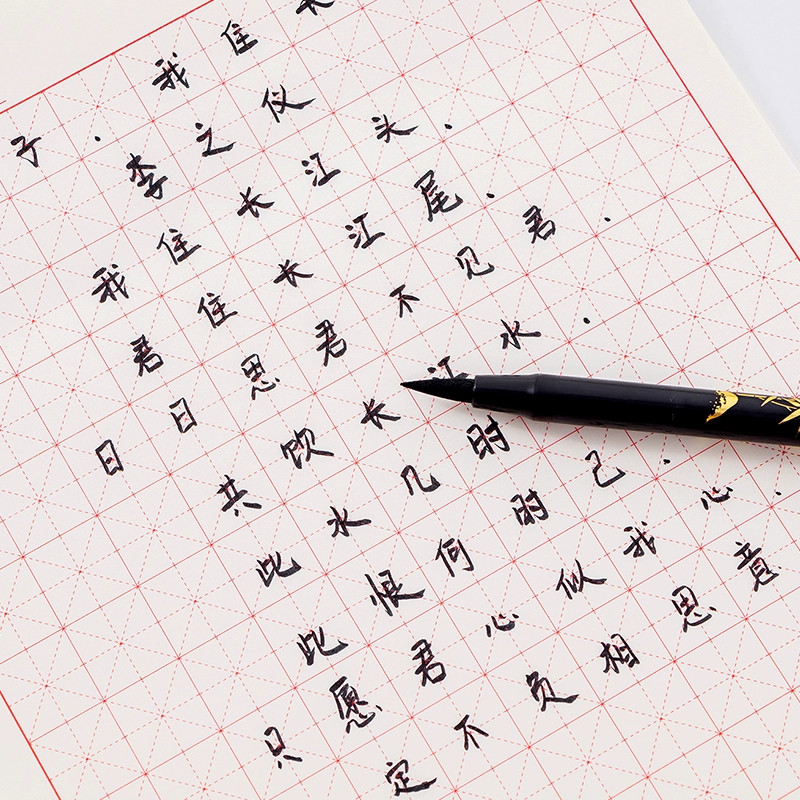 子·我住长
李之仪
我住长江头,
君住长江尾,
日日思君不见君,
共饮长江水,
此水几时
此恨何时已,
只愿君心似我心,
定不负相思意